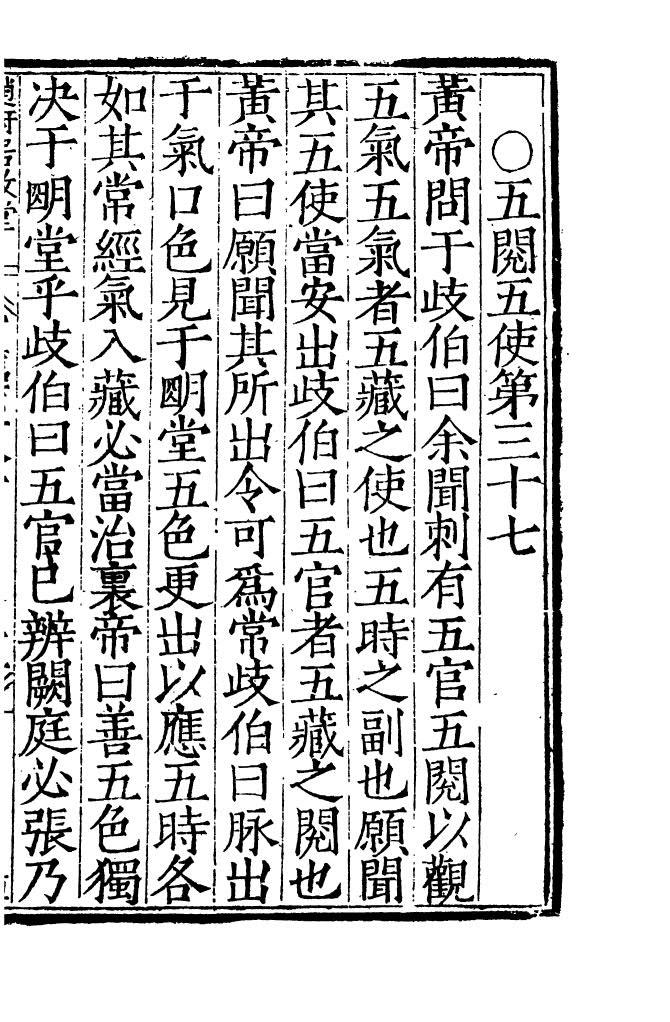 ○五閱五使第三十七
黃帝問于歧伯曰余聞刺有五官五閱以觀
五氣五氣者五藏之使也五時之副也願聞
其五使當安出歧伯曰五官者五藏之閱也
黃帝曰願聞其所出令可爲常歧伯曰脉出
于氣口色見于明堂五色更出以應五時各
如其常經氣入藏必當治裏帝曰善五色獨
决于明堂乎歧伯曰五官已辨闕庭必張乃